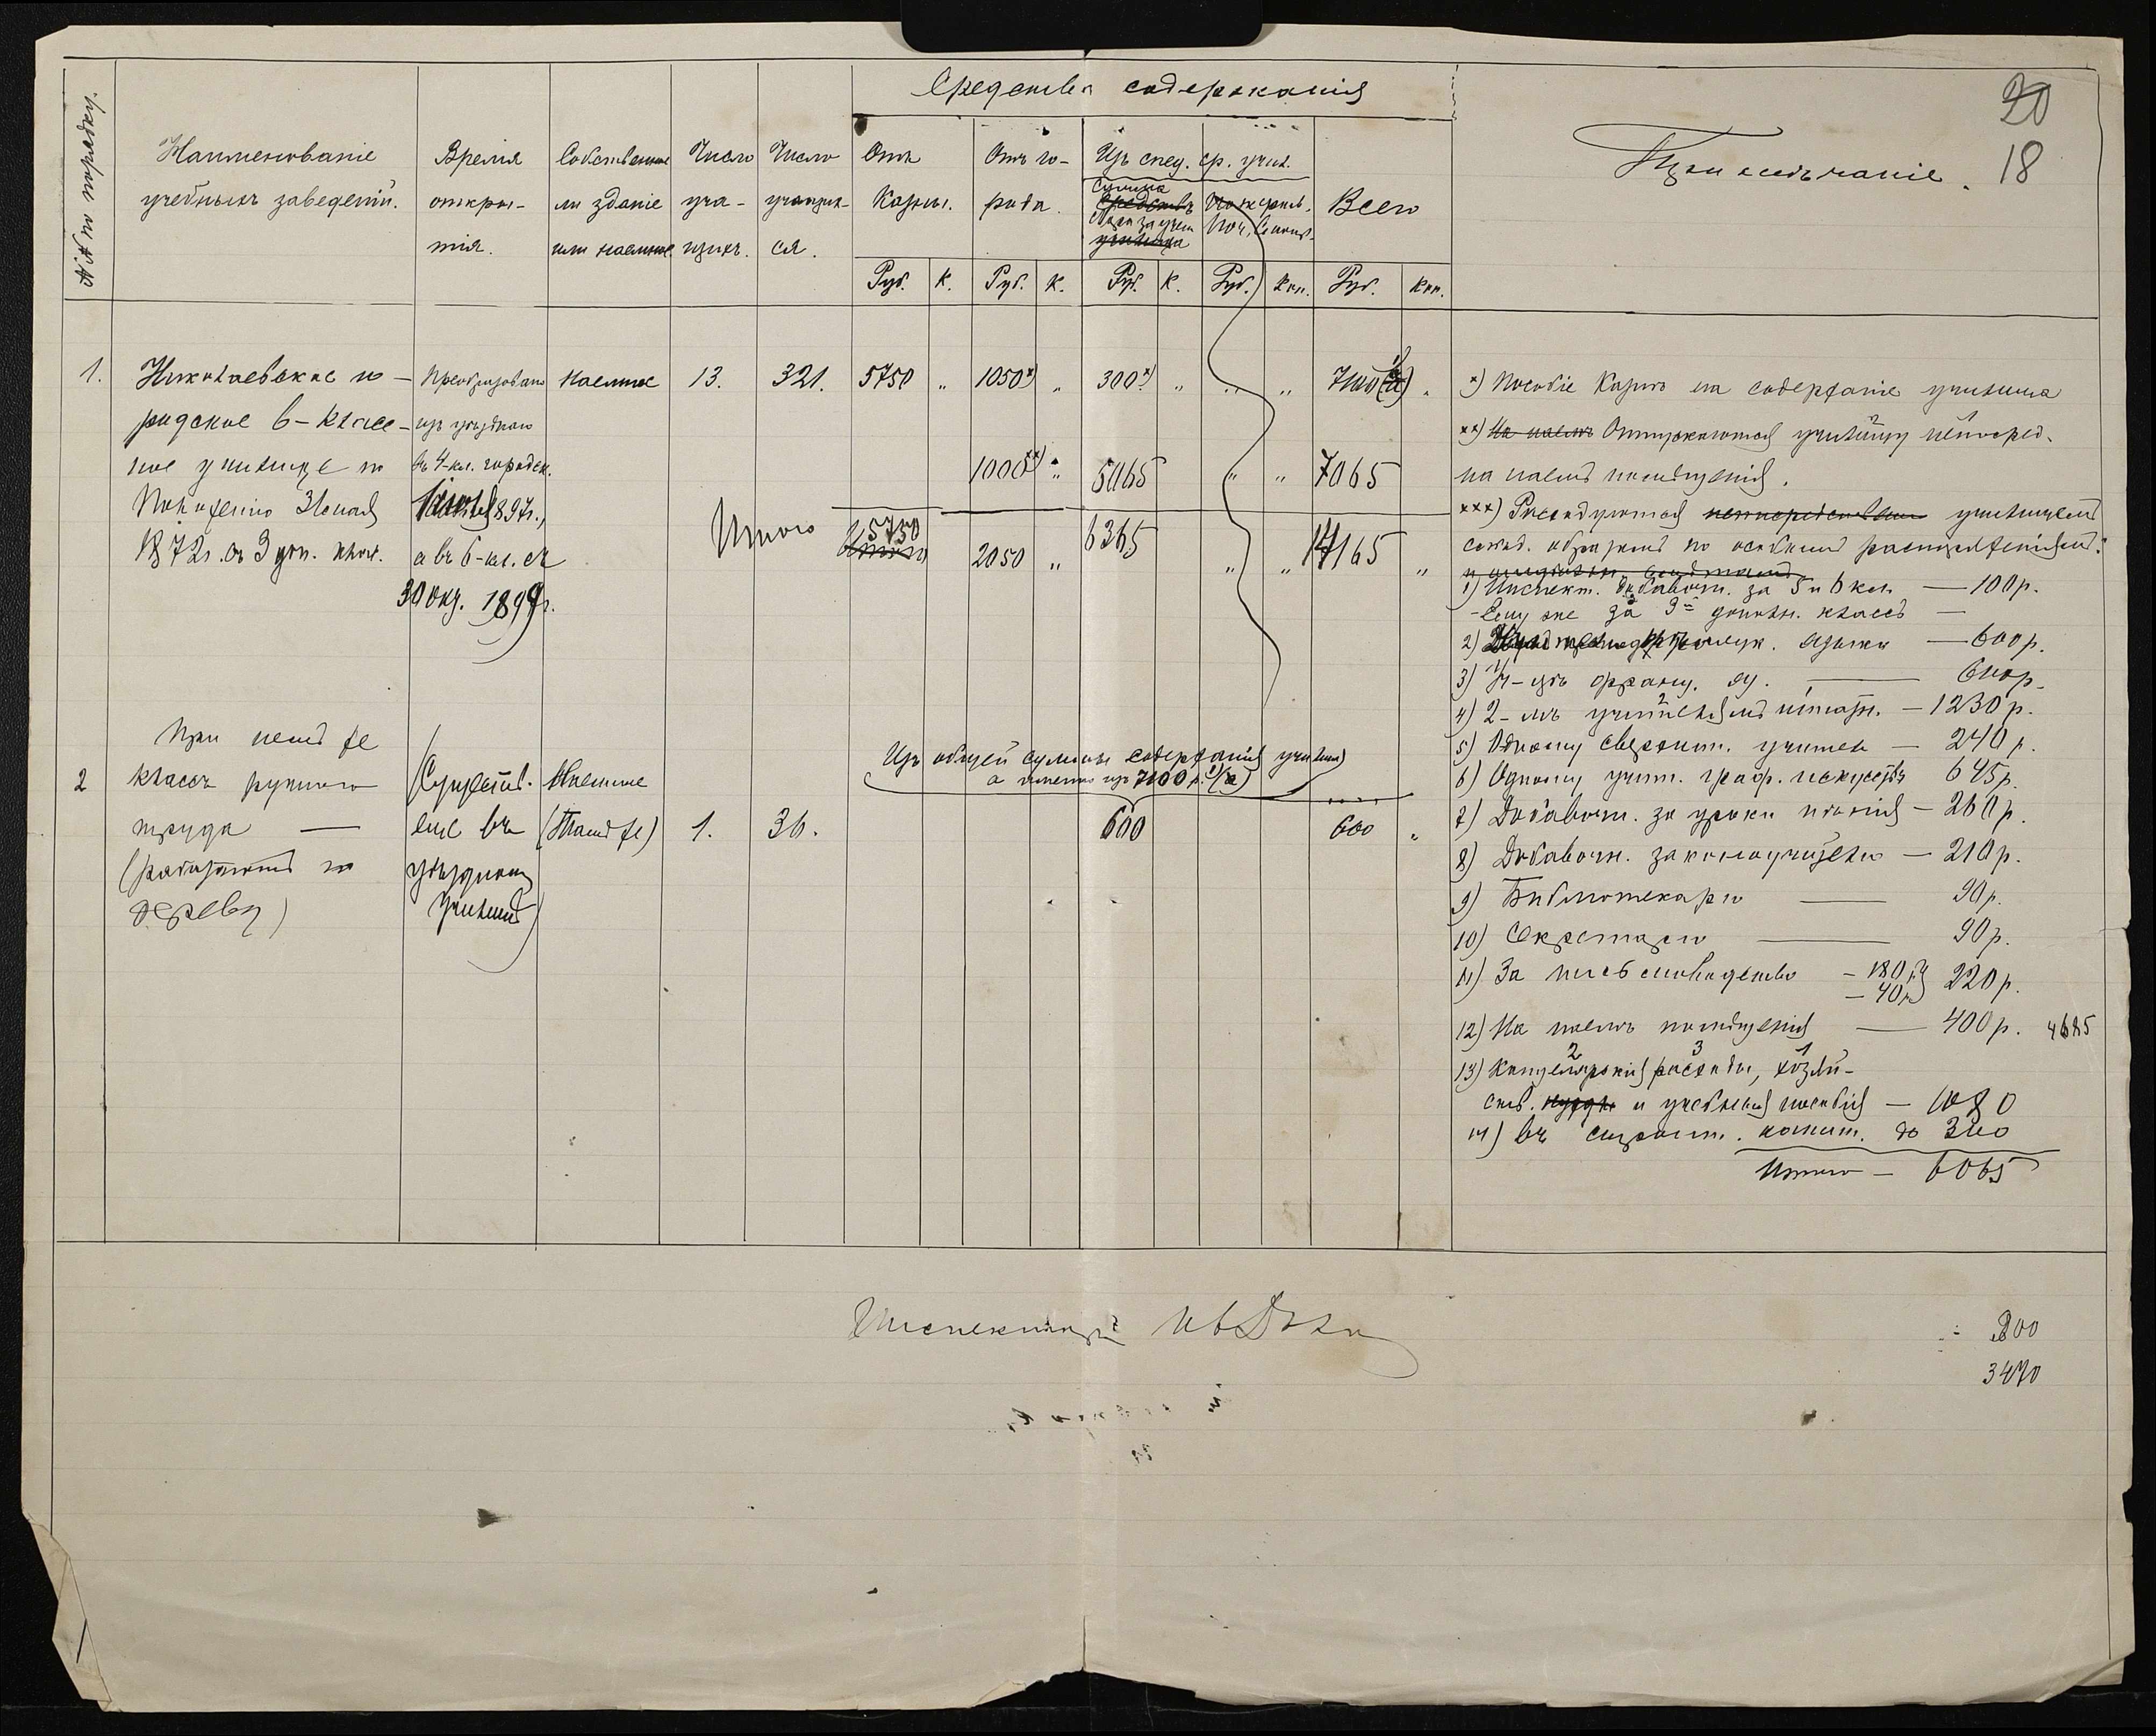 20
18
№№ по порядку.
Наименованіе
учебныхъ заведеній.
Время
откры-
тія.
Собственное
ли зданіе
или наемное.
Число
уча-
щихъ.
Число
учащих-
ся.
Средства содержанія
Отъ
Казны.
Отъ го-
рода.
Изъ спец. ср. учил.
Сумма
средствъ
сбора за учен
училища
Пожертв.
Поч.
Всего
Примѣчаніе.
Руб. К. Руб. К. Руб. К. Руб. Коп. Руб. Коп.
1.
Николаевское го-
родское 6-класс-
ное училище по
Положенію 31 мая
1872 г. съ 3 доп. клас.
Преобразовано
изъ уѣзднаго
въ 4-кл. городск.
1897 г.,
а въ 6-кл. съ
30 окт. 1899 г.
Наемное
13. 321. 5750 „ 1050*) „ 300*) „ „ „ 7100 (а) „
1000**) „ 5065 „ „ 7065
Итого 5750 2050 „ 6365 „ „ 14165 „
2
При немъ же
классъ ручного
труда —
(работаютъ по
дереву)
(Существ.
еще въ
уѣздномъ
училищѣ)
Наемное
(тамъ же)
1. 36.
Изъ общей суммы содержанія училища
а именно изъ 7100 р. (а)
600 600 „
*) Пособіе Казны на содержаніе училища
**) На наемъ Отпускаются училищу непосред.
на наемъ помѣщенія.
***) Расходуются непосредственно училищемъ
слѣд. образомъ по особымъ распоряженіямъ:
1) Инспект. добавочн. за 5 и 6 кл. — 100 р.
Ему же за 3-й дополн. классъ —
2) языка — 600 р.
3) франц. яз. — 600 р.
4) 2-мъ учителямъ штатн. — 1230 р.
5) Одному сверхшт. учителю — 240 р.
6) Одному учит. граф. искусствъ 645 р.
7) Добавочн. за уроки пѣнія — 260 р.
8) Добавочн. законоучителю — 210 р.
9) Библіотекарю — 90 р.
10) Секретарю — 90 р.
11) За письмоводство — 180 р. 220 р.
— 40 р.
12) На наемъ помѣщенія — 400 р. 4685
13) Канцелярскія расходы, хозяй-
ств. нужды и учебныя пособія — 1080
14) Въ строит. капит. до 300
Итого — 6065
Инспекторъ
200
3470